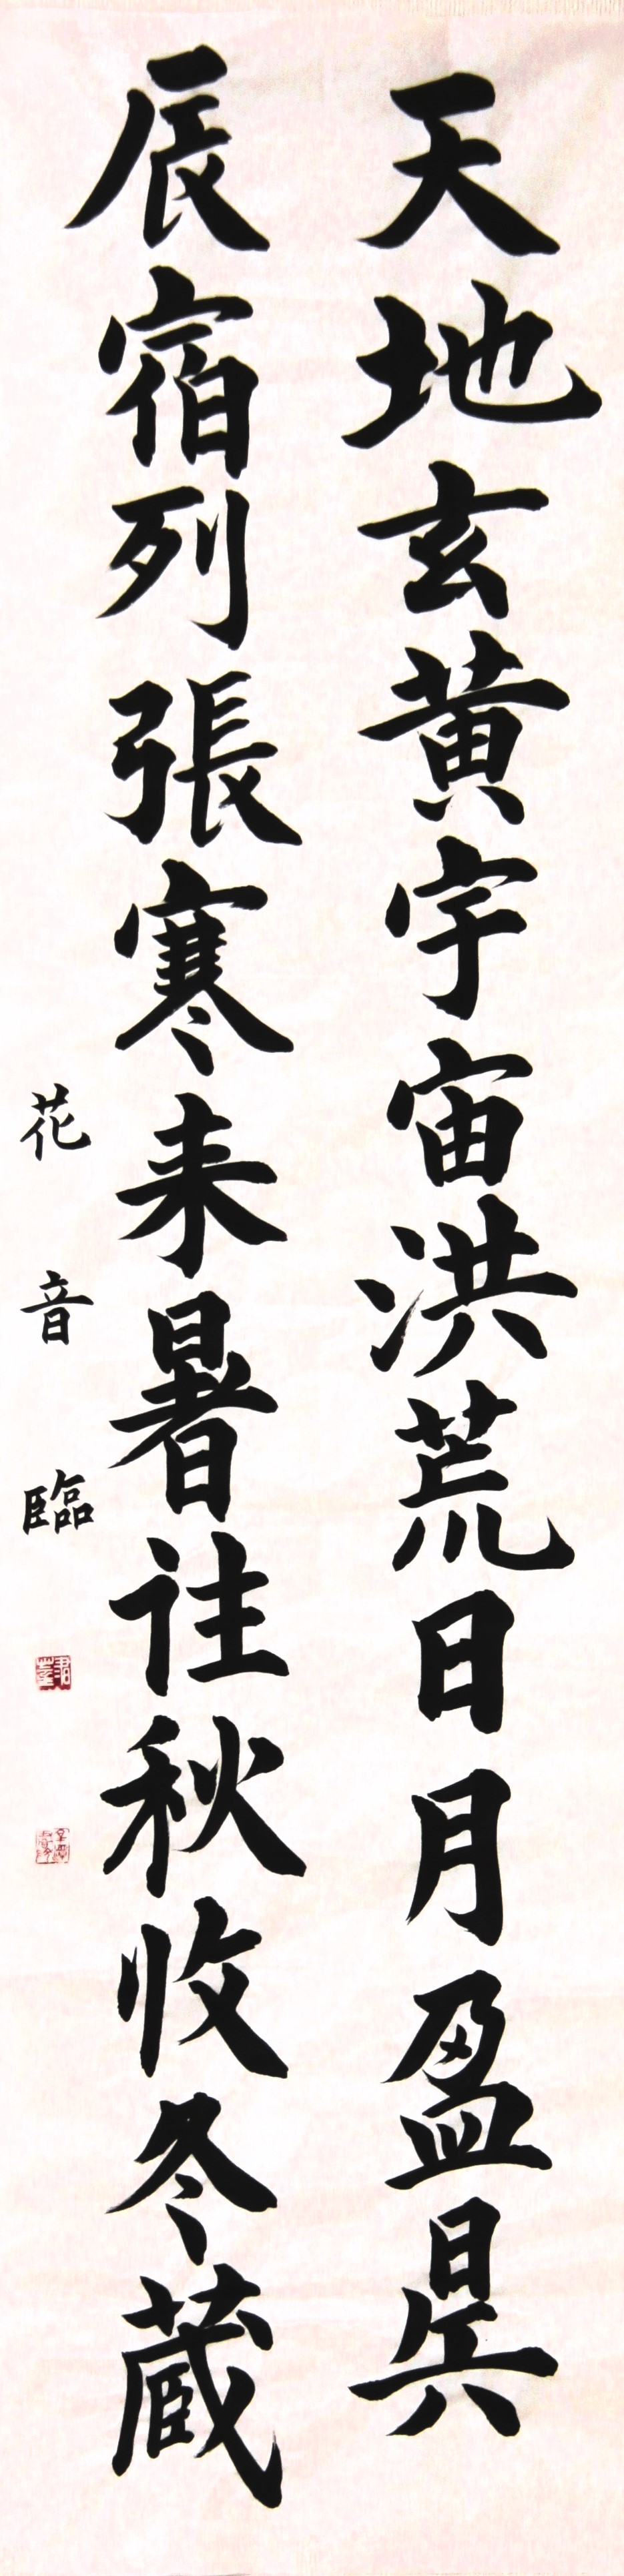 天地玄黄宇宙洪荒日月盈昃
辰宿列張寒来暑往秋收冬蔵
花音臨